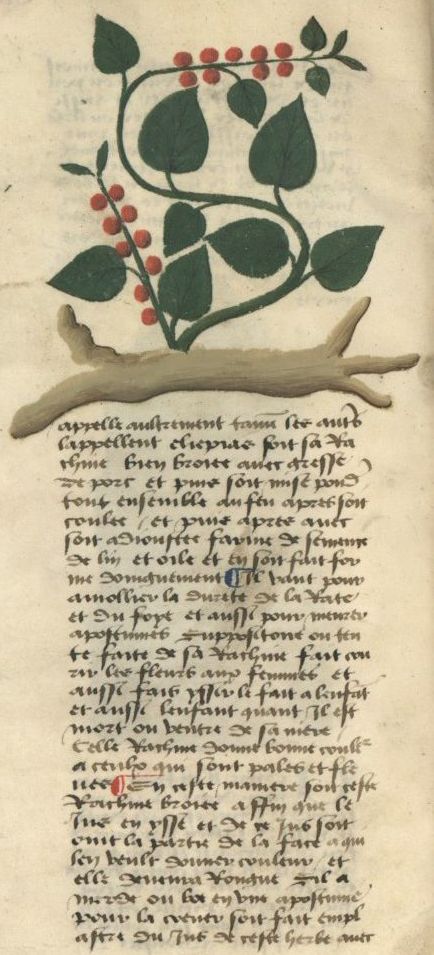 appelle aultrement tam̅ les aut̅s
lappellent eliepias soit sa Ra
chine bien broiee avec gresse
de porc et puis soit mise
tout ensemble au feu apres soit
coulee et puis apres avec
soit adioustee farine de semence
de lin et oile et en soit fait for
me doingnement ¶ Il vault pour
amollier la durete de la Rate
et du foye et aussi pour meurer
apostumes Suppositoire ou ten
te faite de sa Rachine fait cou
rir les fleurs aux femmes et
aussi fait yssir le fait a lenfāt
et aussi lenfant quant Il est
mort ou ventre de sa mere
Celle Rachine donne bonne coulr̅
a ceulx qui sont pales et fle
¶ En ceste maniere soit ceste
Rachine broiee affin que le
Jus en ysse et de ce Jus soit
oint la partie de la face a qui
len veult donner couleur et
elle devenra Rouge Sil a
ou en une apostume
pour la crever soit fait empl
astre du Jus de ceste herbe avec